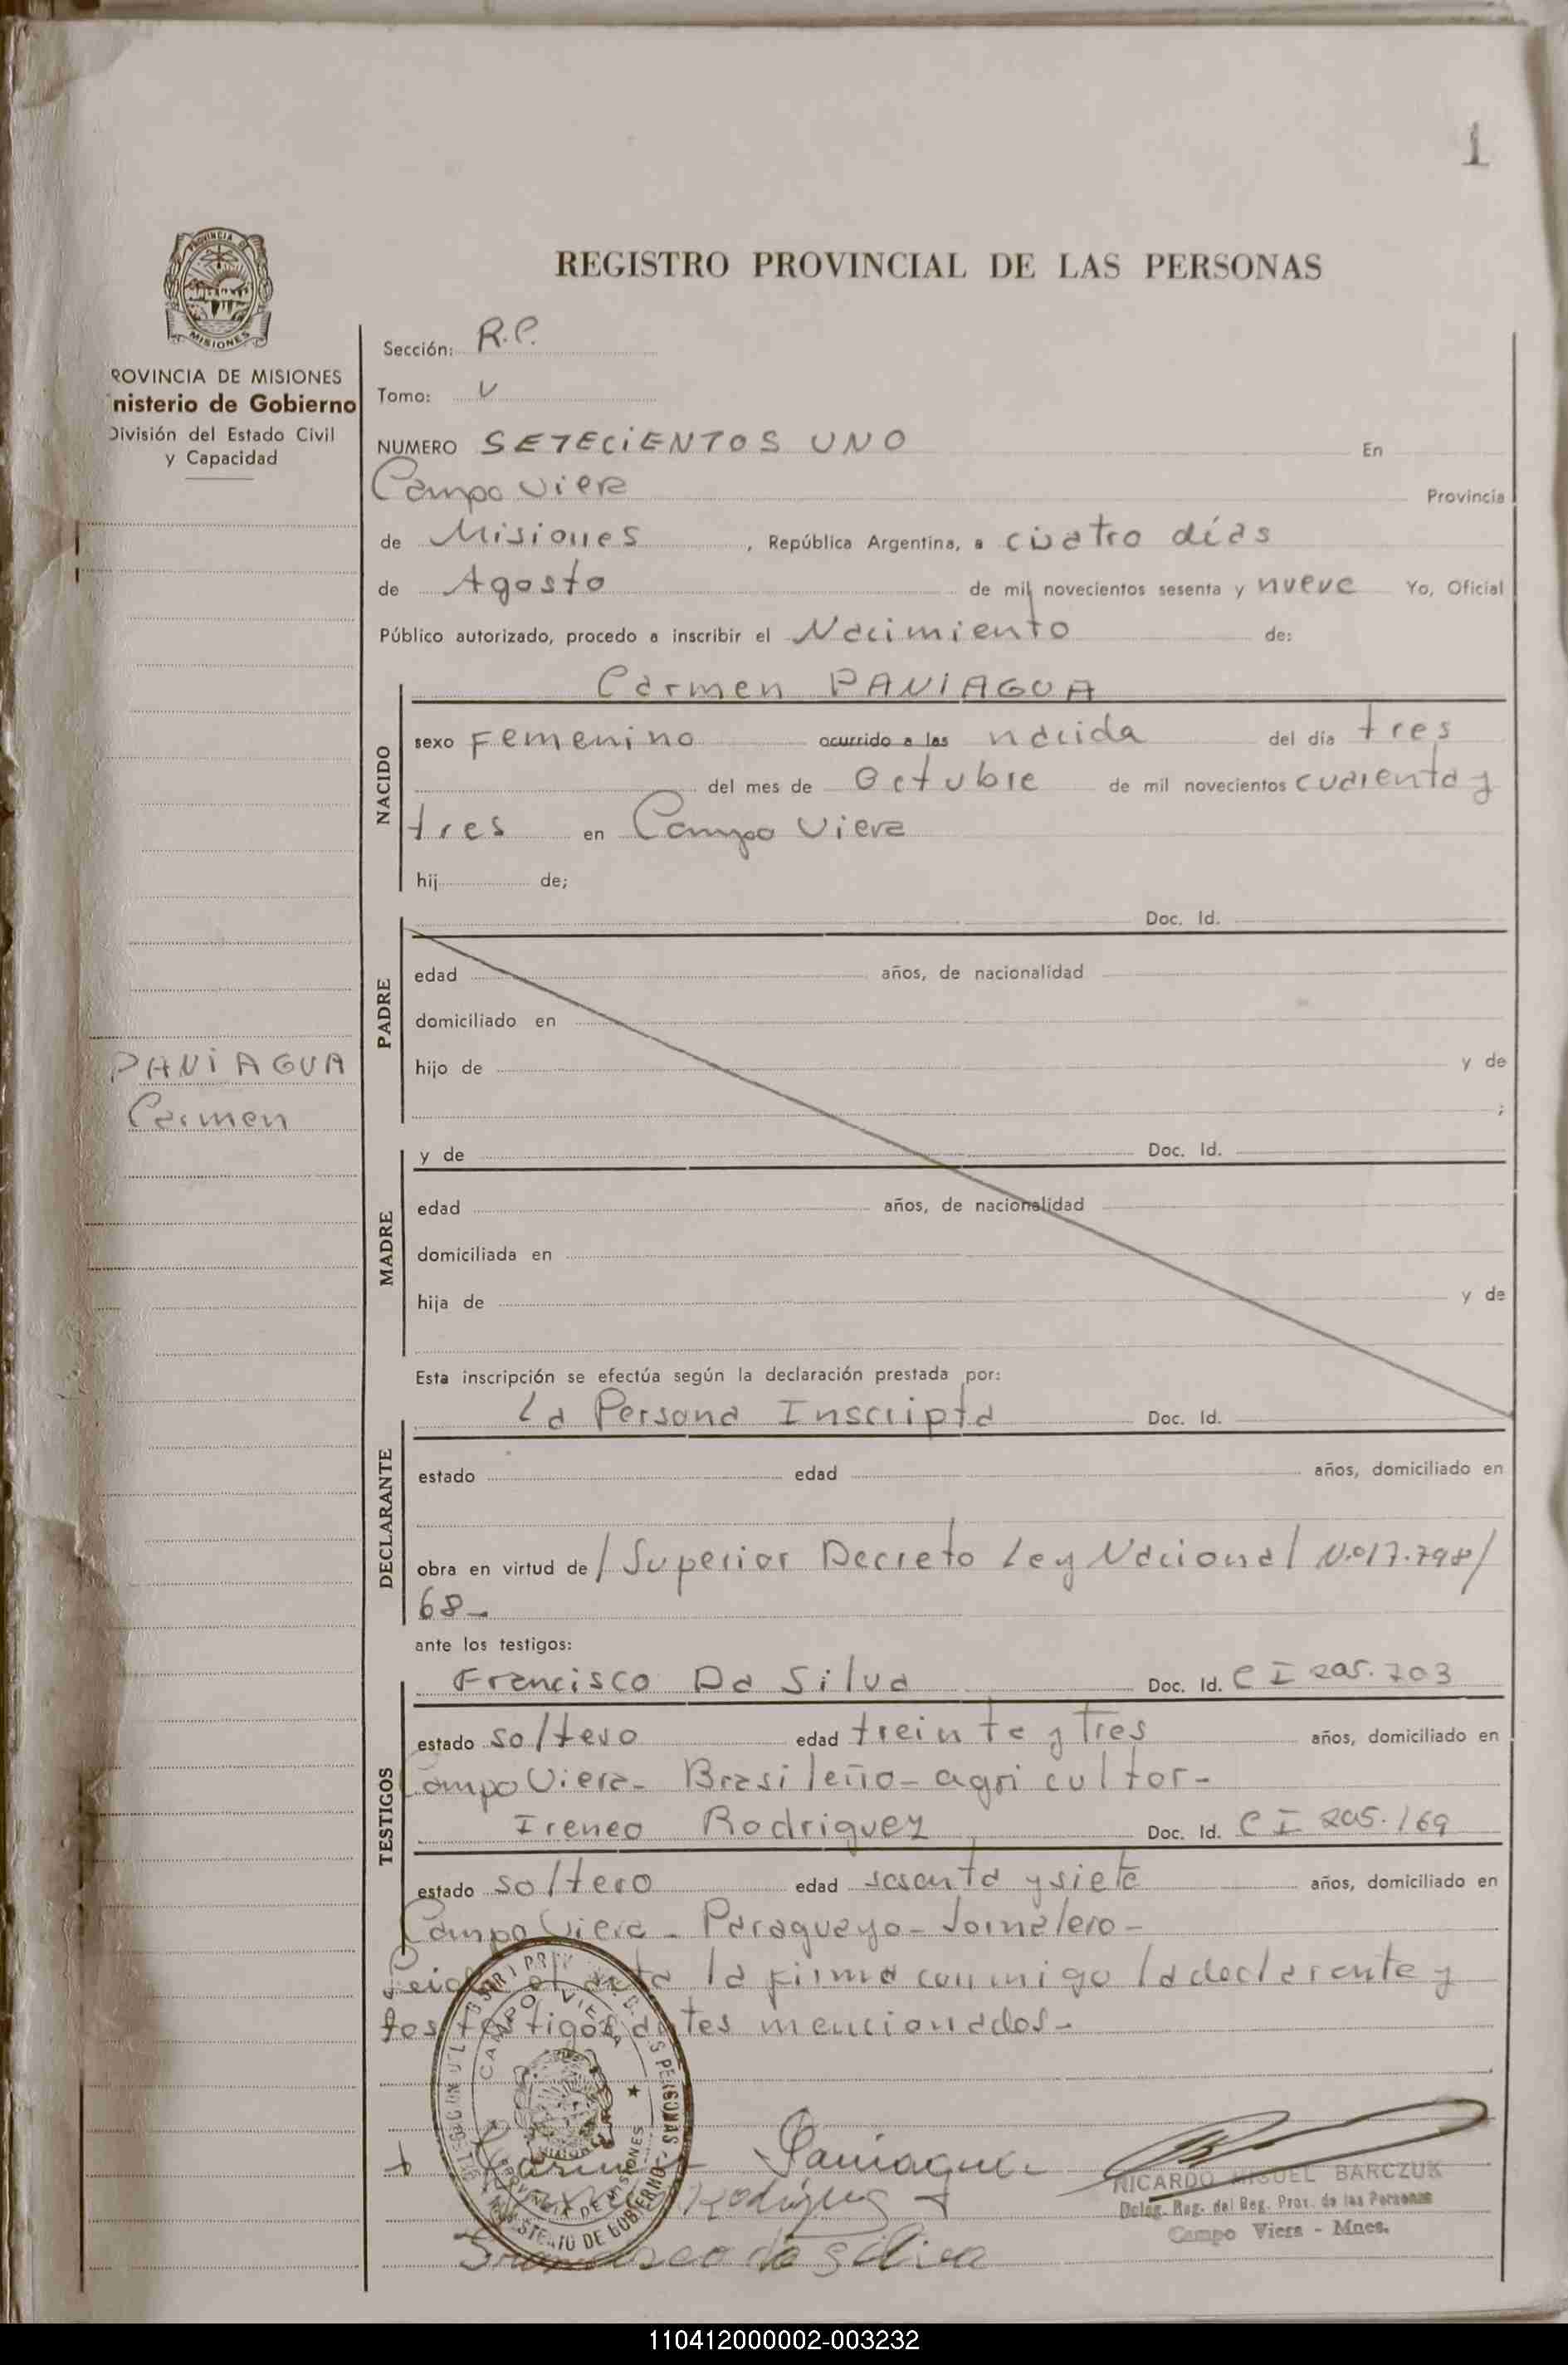 1
REGISTRO PROVINCIAL DE LAS PERSONAS
PROVINCIA DE
MISIONES
ROVINCIA DE MISIONES
nisterio de Gobierno
División del Estado Civil
y Capacidad
Sección: R.P.
Tomo: V
NUMERO SETECIENTOS UNO En
Campo Viera Provincia
de Misiones, República Argentina, a cuatro días
de Agosto de mil novecientos sesenta y nueve Yo, Oficial
Público autorizado, procedo a inscribir el Nacimiento de:
Carmen PANIAGUA
NACIDO
sexo Femenino ocurrido a las nacida del día tres
del mes de Octubre de mil novecientos cuarenta y
tres en Campo Viera
hij de;
PADRE
Doc. Id.
edad años, de nacionalidad
domiciliado en
hijo de y de
;
PANIAGUA
Carmen
MADRE
y de Doc. Id.
edad años, de nacionalidad
domiciliada en
hija de y de
Esta inscripción se efectúa según la declaración prestada por:
DECLARANTE
La Persona Inscripta Doc. Id.
estado edad años, domiciliado en
obra en virtud de / Superior Decreto Ley Nacional N.º 17.798/
68-
ante los testigos:
TESTIGOS
Francisco Da Silva Doc. Id. C I 205.703
estado soltero edad treinta y Tres años, domiciliado en
Campo Viera- Brasileño- agricultor-
Ireneo Rodriguez Doc. Id. C I 205.169
estado soltero edad sesenta y siete años, domiciliado en
Campo Viera- Paraguayo- Jornalero-
el acta la firma conmigo la declarante y
los testigos antes mencionados-
CAMPO VIERA
PROVINCIA DE MISIONES
MINISTERIO DE GOBIERNO
Carmen Paniagua
Rodriguez
Francisco da Silva
RICARDO MIGUEL BARCZUK
Deleg. Reg. del Reg. Prov. de las Personas
Campo Viera - Mnes.
110412000002-003232